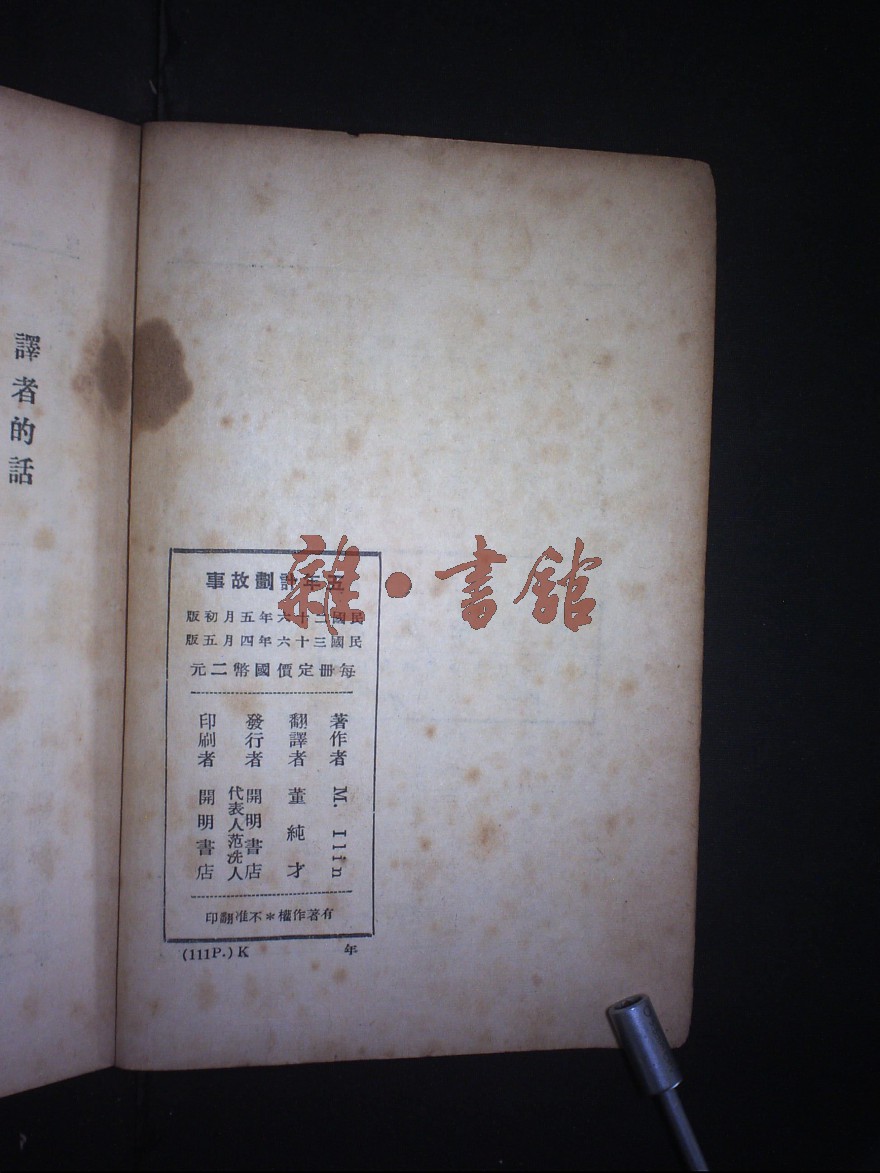 五年計劃故事
民國二十六年五月初版
民國三十六年四月五版
每冊定價國幣二元
著作者 M. Ilin
翻譯者 董純才
發行者 開明書店
代表人范洗人
印刷者 開明書店
有著作權＊不准翻印
(111P.) K 年
譯者的話
雜·書館